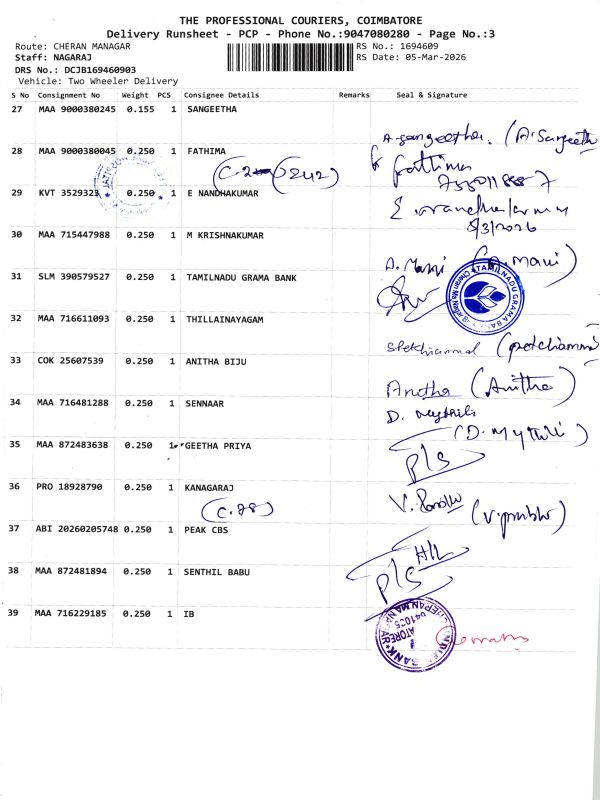 THE PROFESSIONAL COURIERS, COIMBATORE
Delivery Runsheet - PCP - Phone No.:9047080280 - Page No.:3
Route: CHERAN MANAGAR RS No.: 1694609
Staff: NAGARAJ RS Date: 05-Mar-2026
DRS No.: DCJB169460903
Vehicle: Two Wheeler Delivery
S No Consignment No Weight PCS Consignee Details Remarks Seal & Signature
27 MAA 9000380245 0.155 1 SANGEETHA
A. Sangeetha. (A. Sangeeth
28 MAA 9000380045 0.250 1 FATHIMA
fathima
29 KVT 3529323 0.250 1 E NANDHAKUMAR
5/3/2026
30 MAA 715447988 0.250 1 M KRISHNAKUMAR
A. Mani
31 SLM 390579527 0.250 1 TAMILNADU GRAMA BANK
TAMILNADU GRAMA BANK
32 MAA 716611093 0.250 1 THILLAINAYAGAM
33 COK 25607539 0.250 1 ANITHA BIJU
Anitha (Anitha)
34 MAA 716481288 0.250 1 SENNAAR
D. Mythili
(D. Mythili)
35 MAA 872483638 0.250 1 GEETHA PRIYA
P/S
36 PRO 18928790 0.250 1 KANAGARAJ
(V. prabhu)
37 ABI 20260205748 0.250 1 PEAK CBS
H/L
38 MAA 872481894 0.250 1 SENTHIL BABU
P/S
39 MAA 716229185 0.250 1 IB